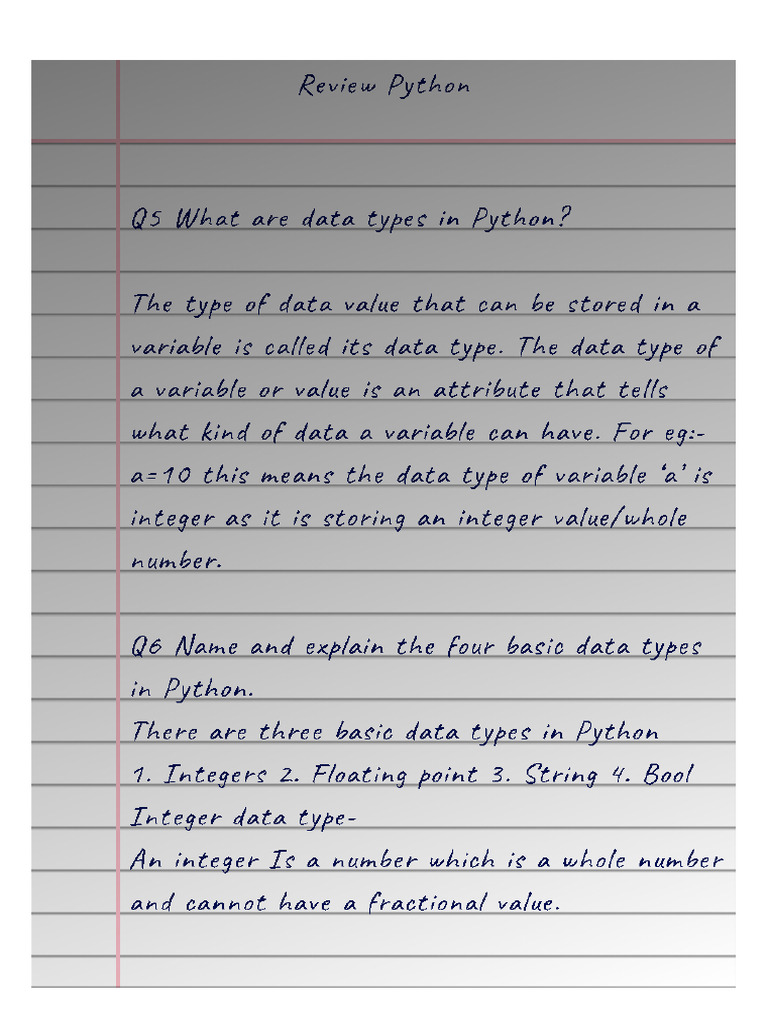 Review Python
Q5 What are data types in Python?
The type of data value that can be stored in a
variable is called its data type. The data type of
a variable or value is an attribute that tells
what kind of data a variable can have. For eg:-
a=10 this means the data type of variable ‘a’ is
integer as it is storing an integer value/whole
number.
Q6 Name and explain the four basic data types
in Python.
There are three basic data types in Python
1. Integers 2. Floating point 3. String 4. Bool
Integer data type-
An integer Is a number which is a whole number
and cannot have a fractional value.